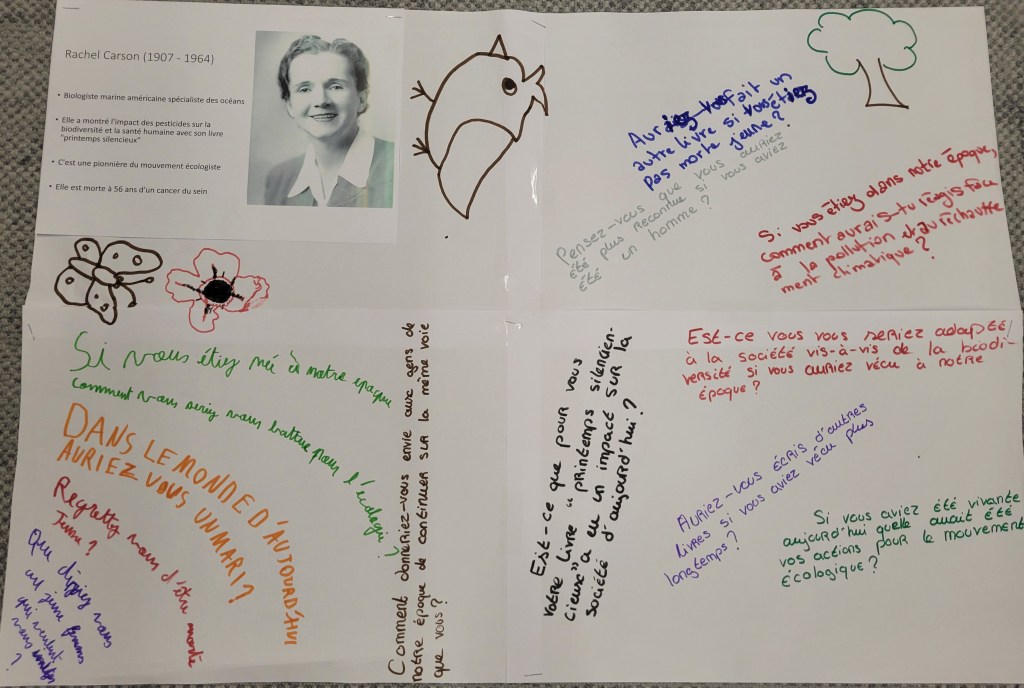 Rachel Carson (1907 - 1964)
• Biologiste marine américaine spécialiste des océans
• Elle a montré l'impact des pesticides sur la
biodiversité et la santé humaine avec son livre
"printemps silencieux"
• C'est une pionnière du mouvement écologiste
• Elle est morte à 56 ans d'un cancer du sein
Auriez-vous fait un
autre livre si vous étiez
pas morte jeune ?
Pensez-vous que vous auriez
été plus reconnue si vous aviez
été un homme ?
Si vous étiez dans notre époque,
comment aurais-tu réagis face
à la pollution et au réchauffe
ment climatique ?
Si vous étiez né à notre epoque
comment vous seriez vous battue pour l'écologi ?
DANS LE MONDE D'AUJOURD'HUI
AURIEZ VOUS UN MARI ?
Regrettez vous d'être morte
Jeune ?
Que diriez vous
aux jeune femmes
qui veulent
vous
?
Comment donneriez-vous envie aux gens de
notre époque de continuer sur la même voie
que vous ?
Est-ce que pour vous
votre livre " printemps silencien-
cieuse" a eu un impact sur la
société d'aujourd'hui ?
Est-ce vous vous seriez adaptée
à la société vis-à-vis de la biodi-
versité si vous auriez vécu à notre
époque ?
Auriez-vous écris d'autres
livres si vous aviez vécu plus
longtemps ?
Si vous aviez été vivante
aujourd'hui quelle aurait été
vos actions pour le mouvement
écologique ?